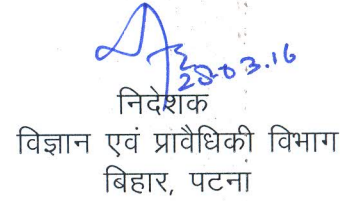 28.03.16
निदेशक
विज्ञान एवं प्रावैधिकी विभाग
बिहार, पटना